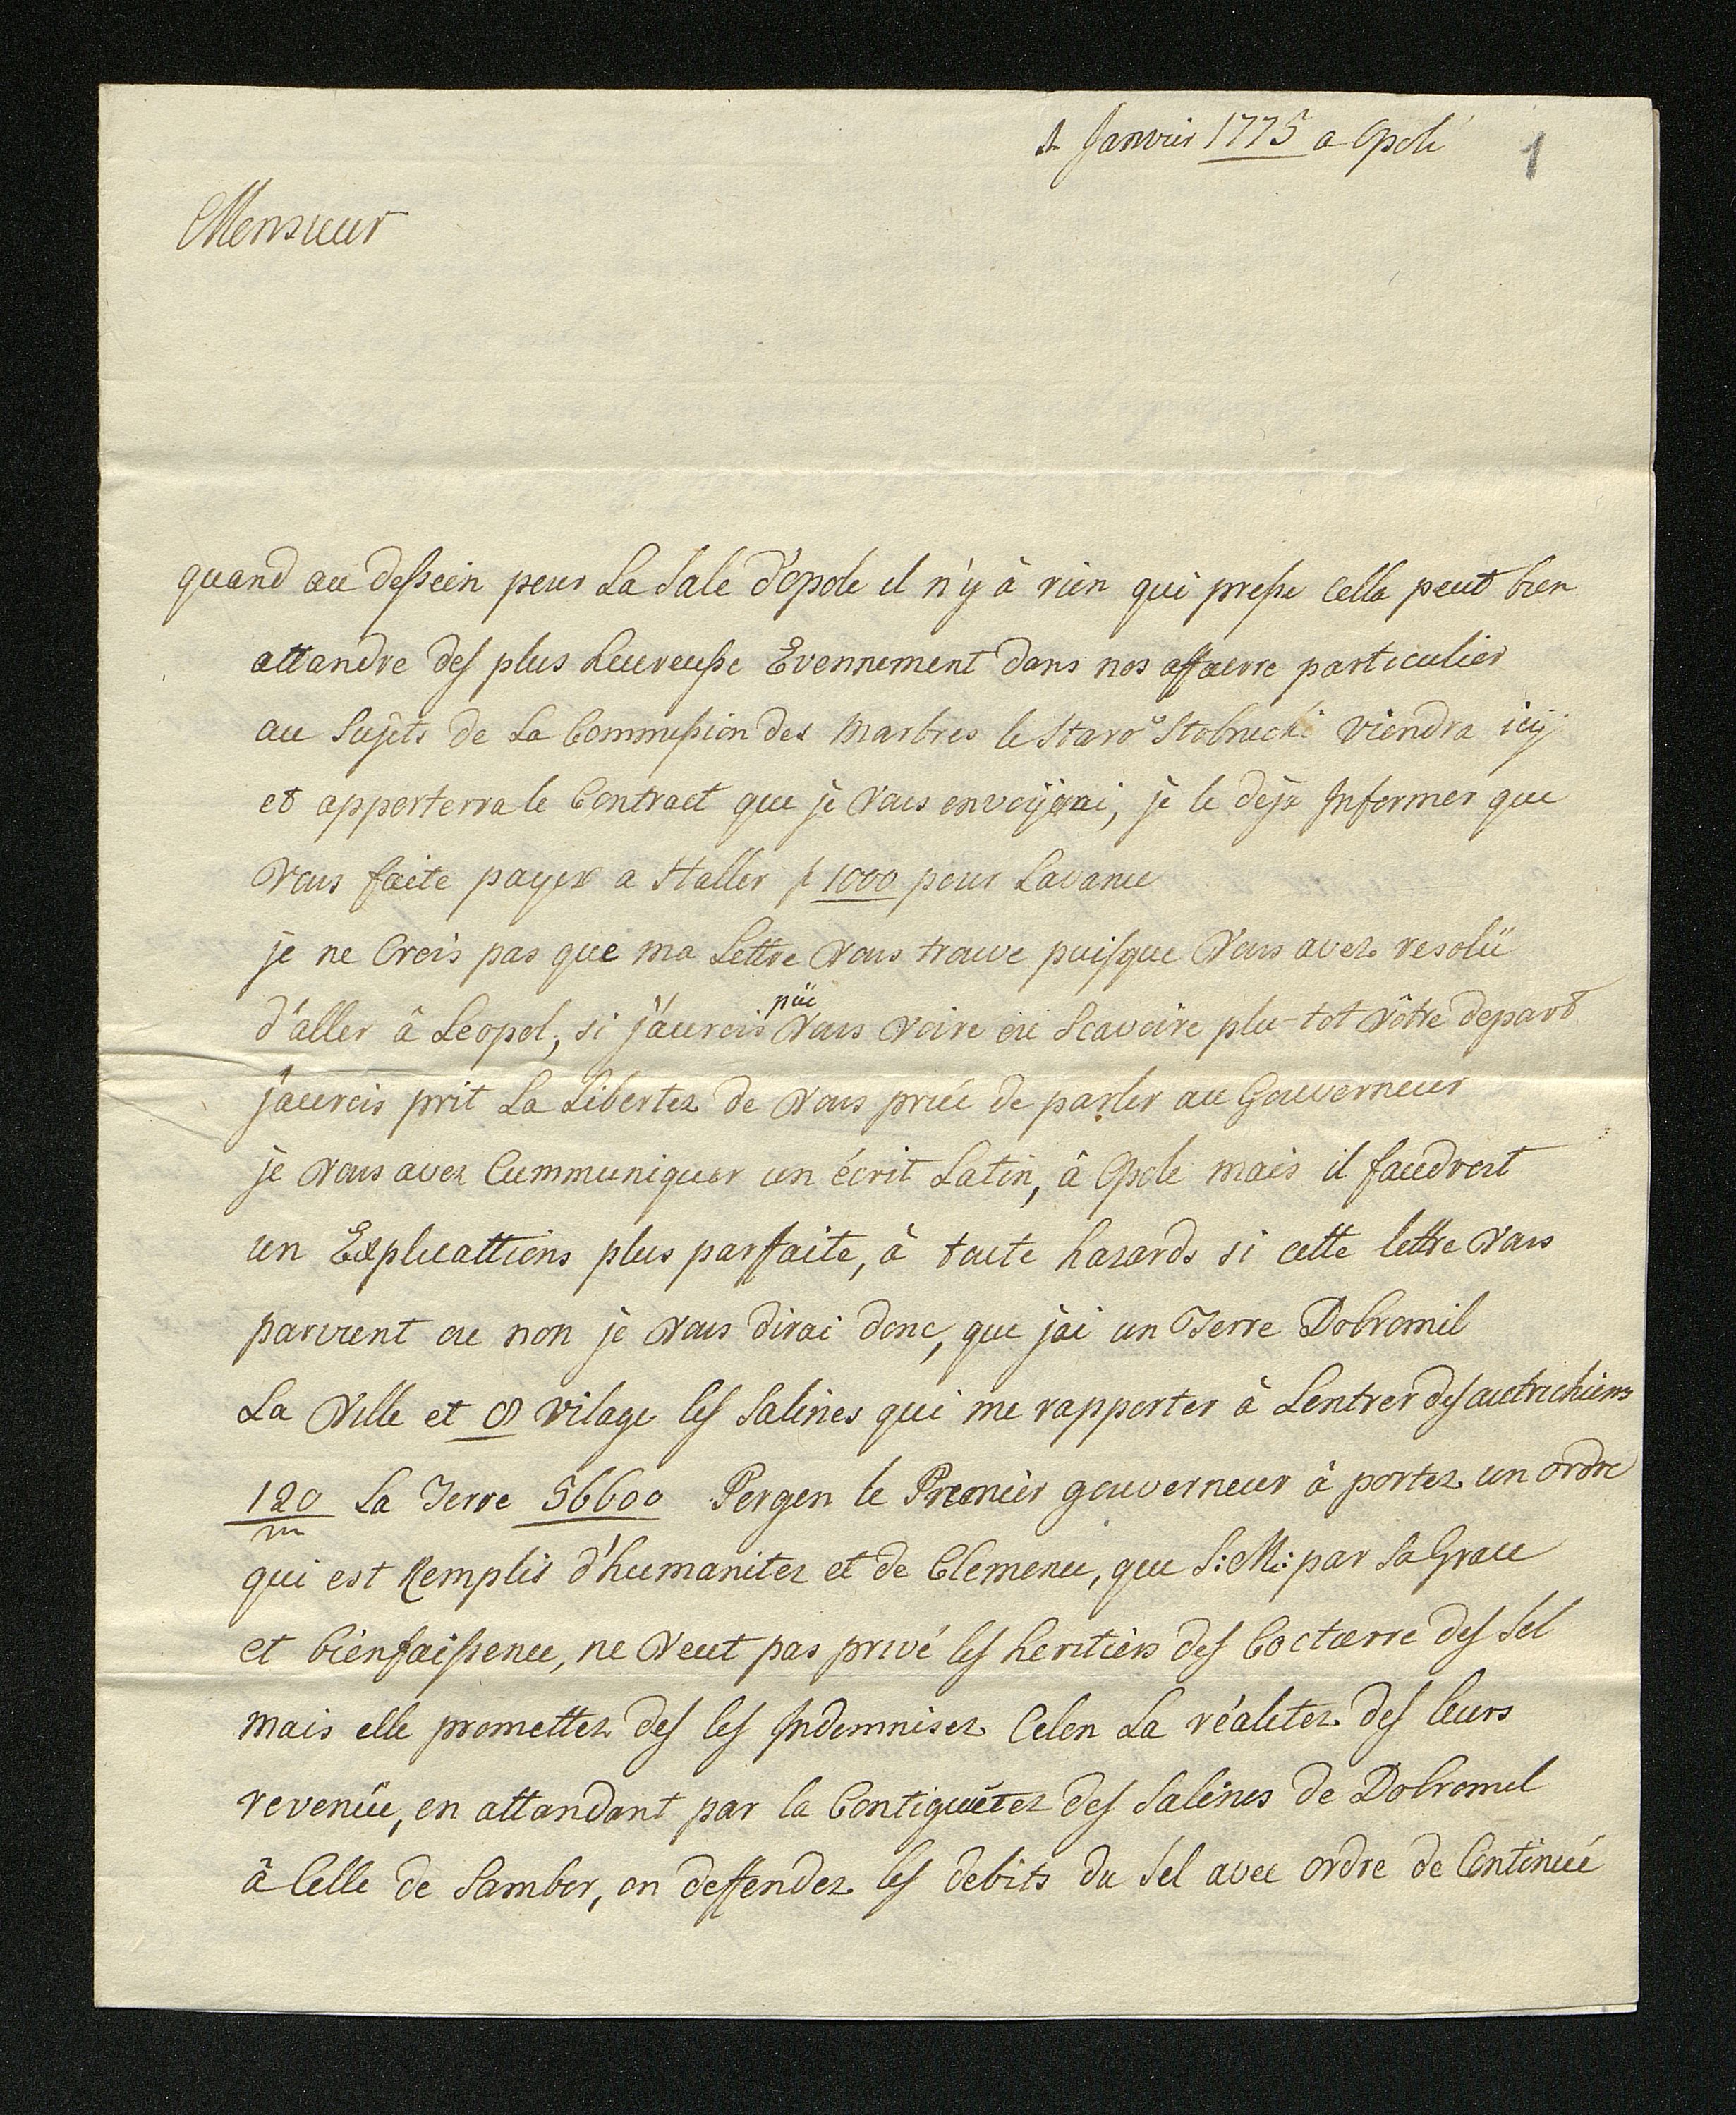 1 Janvier 1775 a Opole
1
Monsieur
quand au dessein pour La Sale d'opole il n'y à rien qui presse cella peut bien
attandre des plus heureusse Evennement dans nos affaerre particulier
au Sujets de La Commission des Marbres le Staro Stobnicki viendra icy
et apporterra le Contract que je vous envoÿerai, je le deja Informer que
vous faite payer a Haller # 1000 pour Lavance
je ne Crois pas que ma Lettre vous trouve puisque vous avez resolü
d'aller â Leopol, si j'aurois püe vous voire ou Scavoire plu-tot vôtre depart
j'aurois prit La Libertez de vous priée de parler au Gouverneur
je vous avez Cummuniquer un écrit Latin, â Opole mais il faudroit
un Explicattions plus parffaite, à toute hazards si cette lettre vous
parvient ou non je vous dirai donc, que j'ai un Terre Dobromil
La ville et 8 vilage les Salines qui me rapporter à Lentrer des autrichiens
120/m La Terre 56600 Pergen le Premier gouverneur à portez un ordre
qui est Remplis d'humanitez et de Clemence, que S: M: par Sa Grace
et bienfaissence, ne veut pas privé les heritiers des Coctaerre des Sel
mais elle promettez des les Indemnisez Celon La réalitez des leurs
revenüe, en attandant par la Contiguëtez des Salines de Dobromil
â Celle de Sambor, on deffendez les debits du Sél avec ordre de Continué